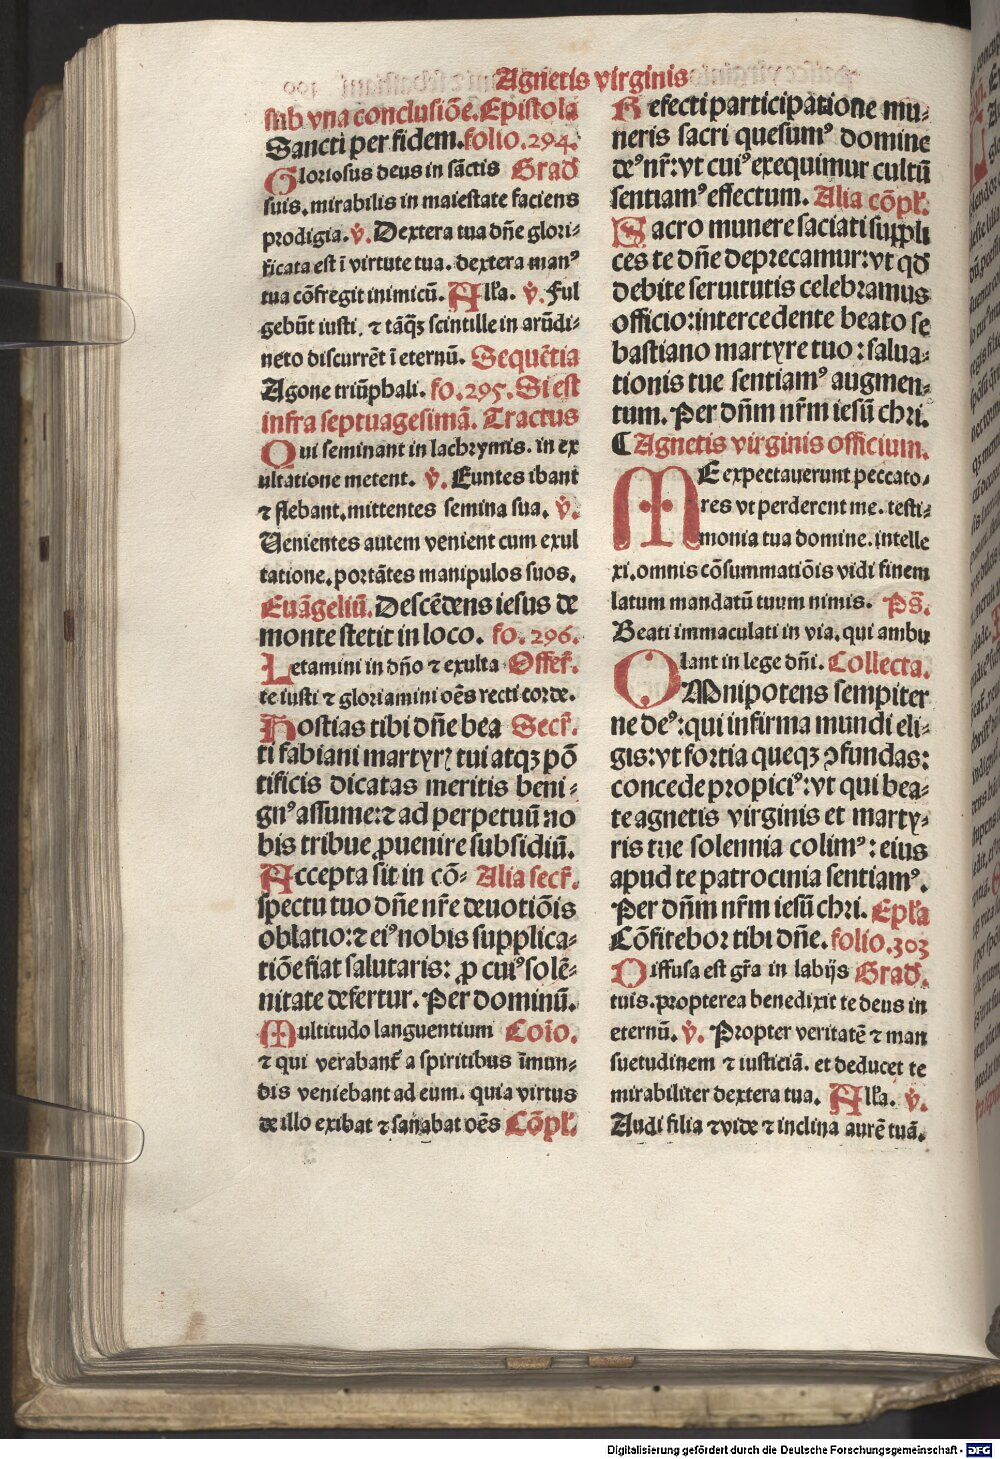 Agnetis virginis
sub vna conclusiōe. Epistola
Sancti per fidem. folio. 294.
Gloriosus deus in sāctis Grad
suis. mirabilis in maiestate faciens
prodigia. v̊. Dextera tua dn̄e glori-
ficata est ī virtute tua. dextera manꝰ
tua cōfregit inimicū. All'a. v̊. Ful
gebūt iusti. ⁊ tāꝗꝫ scintille in arūdi-
neto discurrēt ī eternū. Sequētia
Agone triūphali. fo. 295. Si est
infra septuagesimā. Tractus
Qui seminant in lachrymis. in ex
ultatione metent. v̊. Euntes ibant
⁊ flebant. mittentes semina sua. v̊.
Uenientes autem venient cum exul
tatione. portātes manipulos suos.
Euāgeliū. Descēdens iesus de
monte stetit in loco. fo. 296.
Letamini in dn̄o ⁊ exulta Offer̄.
te iusti ⁊ gloriamini oēs recti corde.
Hostias tibi dn̄e bea Secr̄.
ti fabiani martyrꝭ tui atqꝫ pō
tificis dicatas meritis beni-
gnꝰ assume: ⁊ ad perpetuū no
bis tribue ꝓuenire subsidiū.
Accepta sit in cō- Alia secr̄.
spectu tuo dn̄e nr̄e deuotiōis
oblatio: ⁊ eiꝰ nobis supplica-
tiōe fiat salutaris: ꝓ cuiꝰ solē-
nitate defertur. Per dominū.
Multitudo languentium Cōio.
⁊ qui verabant' a spiritibus īmun-
dis veniebant ad eum. quia virtus
de illo exibat ⁊ sanabat oēs Cōpl'.
Refecti participatione mu-
neris sacri quesumꝰ domine
deꝰ nr̄: vt cuiꝰ exequimur cultū
sentiamꝰ effectum. Alia cōpl'.
Sacro munere saciati suppli
ces te dn̄e deprecamur: vt qd
debite seruitutis celebramus
officio: intercedente beato se
bastiano martyre tuo: salua-
tionis tue sentiamꝰ augmen-
tum. Per dn̄m nr̄m iesū chri.
¶ Agnetis virginis officium.
ME expectauerunt peccato-
res vt perderent me. testi-
monia tua domine. intelle
xi. omnis cōsummatiōis vidi finem
latum mandatū tuum nimis. Ps̄.
Beati immaculati in via. qui ambu
lant in lege dn̄i. Collecta.
OMnipotens sempiter
ne deꝰ: qui infirma mundi eli-
gis: vt fortia queqꝫ ꝯfundas:
concede propiciꝰ: vt qui bea-
te agnetis virginis et marty-
ris tue solennia colimꝰ: eius
apud te patrocinia sentiamꝰ.
Per dn̄m nr̄m iesū chri. Ep̄la
Cōfitebor tibi dn̄e. folio. 303
Diffusa est gr̄a in labijs Grad.
tuis. propterea benedixit te deus in
eternū. v̊. Propter veritatē ⁊ man
suetudinem ⁊ iusticiā. et deducet te
mirabiliter dextera tua. All'a. v̊.
Audi filia ⁊ vide ⁊ inclina aurē tuā.
Digitalisierung gefördert durch die Deutsche Forschungsgemeinschaft - DFG